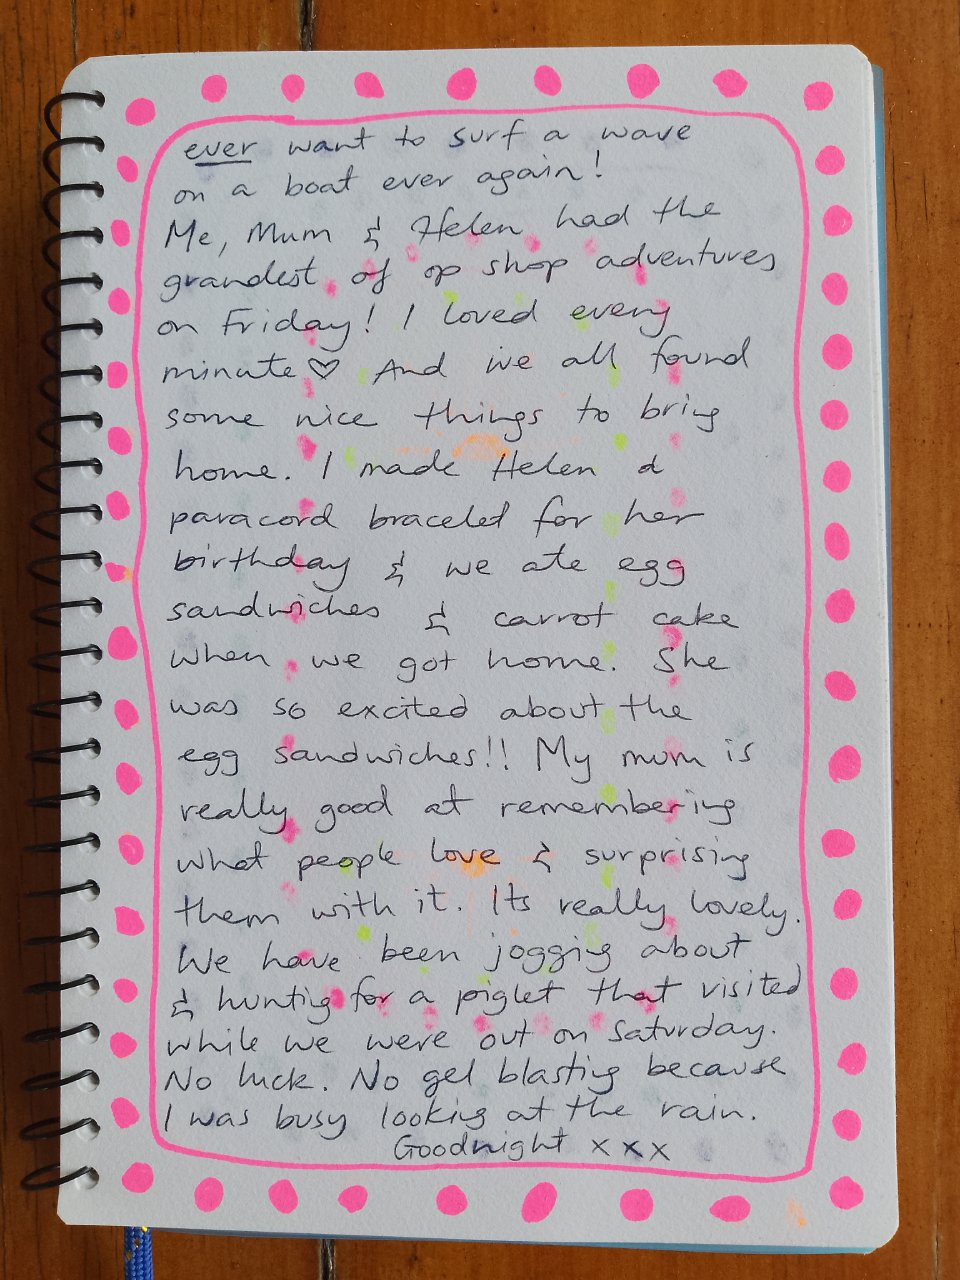 ever want to surf a wave
on a boat ever again!
Me, Mum & Helen had the
grandest of op shop adventures
on Friday! I loved every
minute♡ And we all found
some nice things to bring
home. I made Helen a
paracord braceled for her
birthday & we ate egg
sandwiches & carrot cake
when we got home. She
was so excited about the
egg sandwiches!! My mum is
really good at remembering
what people love & surprising
them with it. Its really lovely.
We have been jogging about
& hunting for a piglet that visited
while we were out on Saturday.
No luck. No gel blasting because
I was busy looking at the rain.
Goodnight x x x